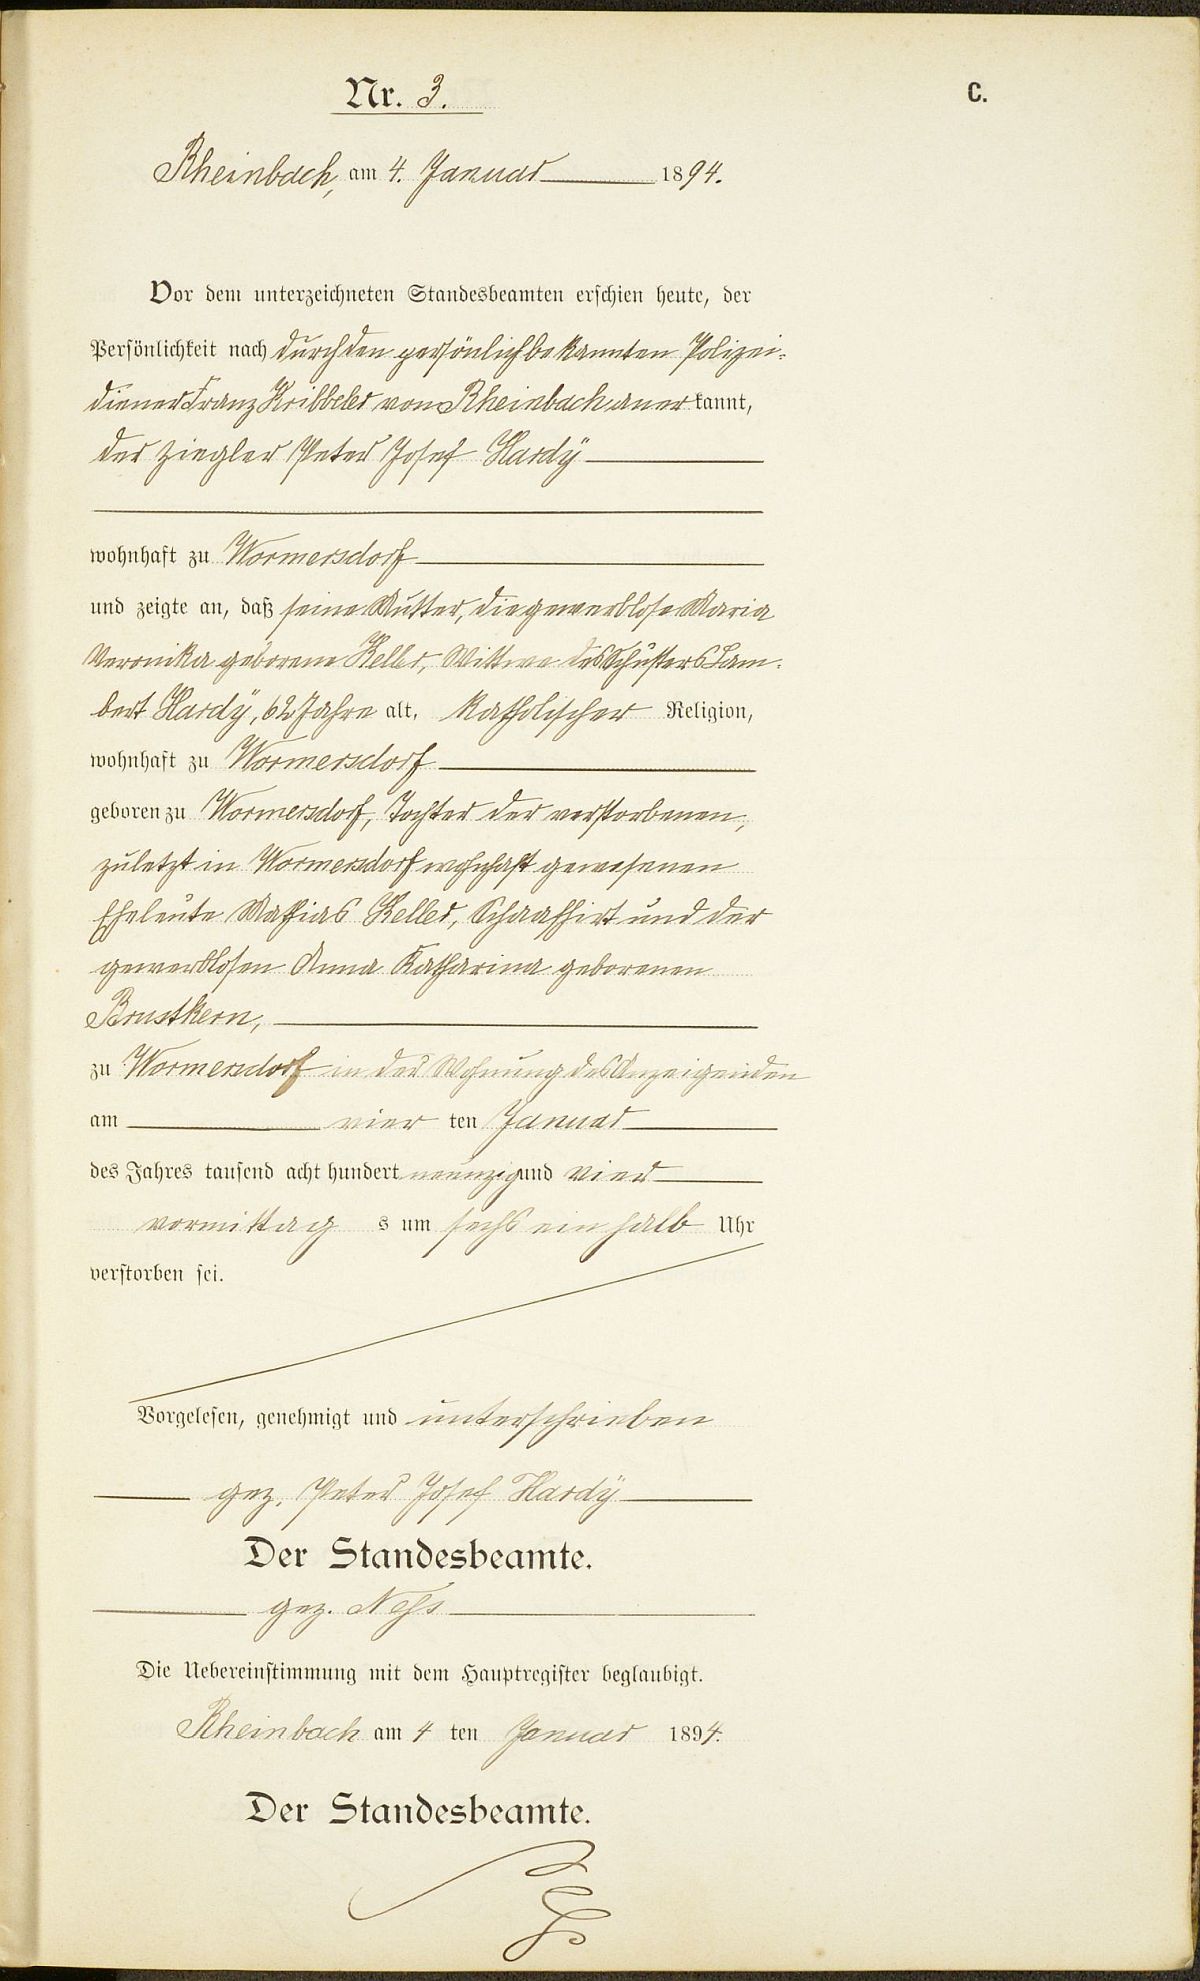 Nr. 3.
C.
Rheinbach, am 4. Januar 1894.
Vor dem unterzeichneten Standesbeamten erschien heute, der
Persönlichkeit nach durch den persönlich bekannten Polizei-
diener Franz Kribbeler von Rheinbach anerkannt,
der Ziegler Peter Josef Hardÿ
wohnhaft zu Wormersdorf
und zeigte an, daß seine Mutter, die gewerblose Maria
Veronika geborene Keller, Wittwe des Schusters Lam-
bert Hardÿ, 62 Jahre alt, katholischer Religion,
wohnhaft zu Wormersdorf
geboren zu Wormersdorf, Tochter der verstorbenen,
zuletzt in Wormersdorf wohnhaft gewesenen
Eheleute Mathias Keller, Schaafhirt und der
gewerblosen Anna Katharina geborenen
Brustkern,
zu Wormersdorf in der Wohnung des Anzeigenden
am vier ten Januar
des Jahres tausend acht hundert neunzig und vier
vormittag s um sechs ein halb Uhr
verstorben sei.
Vorgelesen, genehmigt und unterschrieben
gez. Peter Josef Hardÿ
Der Standesbeamte.
gez.
Die Uebereinstimmung mit dem Hauptregister beglaubigt.
Rheinbach am 4 ten Januar 1894.
Der Standesbeamte.